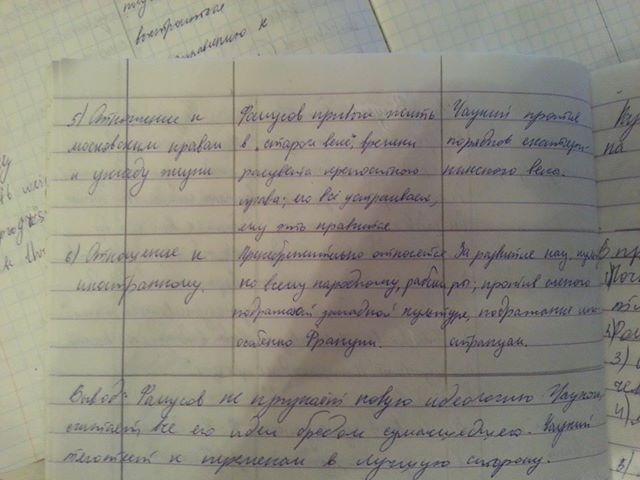 выстроитсе
к
5) Отношение к
московским нравам
и укладу жизни
Фамусов привык жить
в старом веке, времени
расцвета крепостного
права; его всё устраивает,
ему это нравится
Чацкий против
порядков екатери-
нинского века.
6) Отношение к
иностранному.
Пренебрежительно относится
ко всему народному, рабски
подражает западной культуре,
особенно Франции.
За развитие нац. культу-
ры; против слепого
подражания ино-
странцам.
Вывод: Фамусов не признаёт новую идеологию Чацкого,
считает все его идеи бредом сумасшедшего. Чацкий
тяготеет к переменам в лучшую сторону.
на
3)
4)